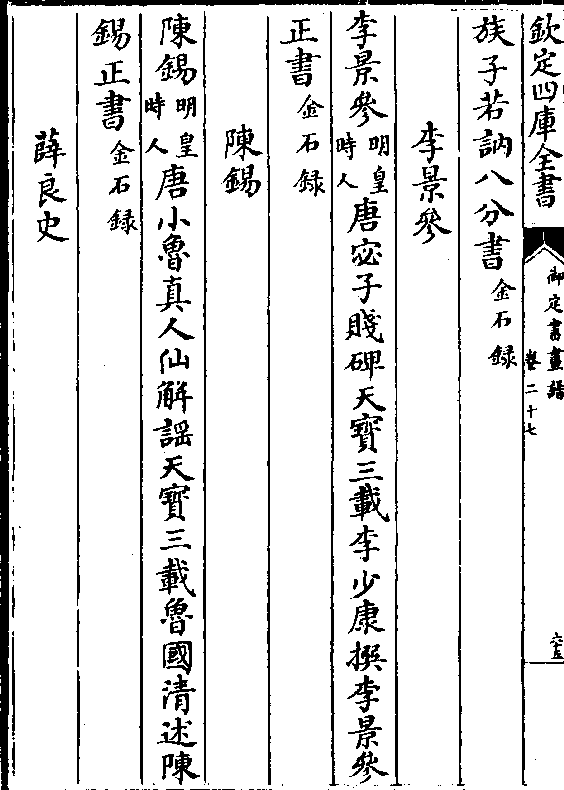 欽定四庫全書
御定書畫譜
卷二十七
六五
族子若訥八分書金石録
李景參
李景參明皇時人唐宓子賤碑天寶三載李少康撰李景參
正書金石録
陳錫
陳錫明皇時人唐小魯真人仙解謡天寶三載魯國清述陳
錫正書金石録
薛良史